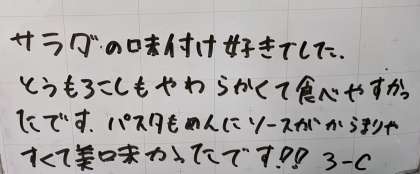 サラダの味付け好きでした。
とうもろこしもやわらかくて食べやすかっ
たです。パスタもめんにソースがからまりや
すくて美味かったです!! 3-C